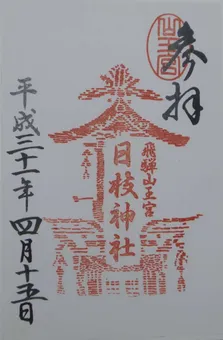 参拝
飛騨山王宮
日枝神社
平成三十一年四月十五日